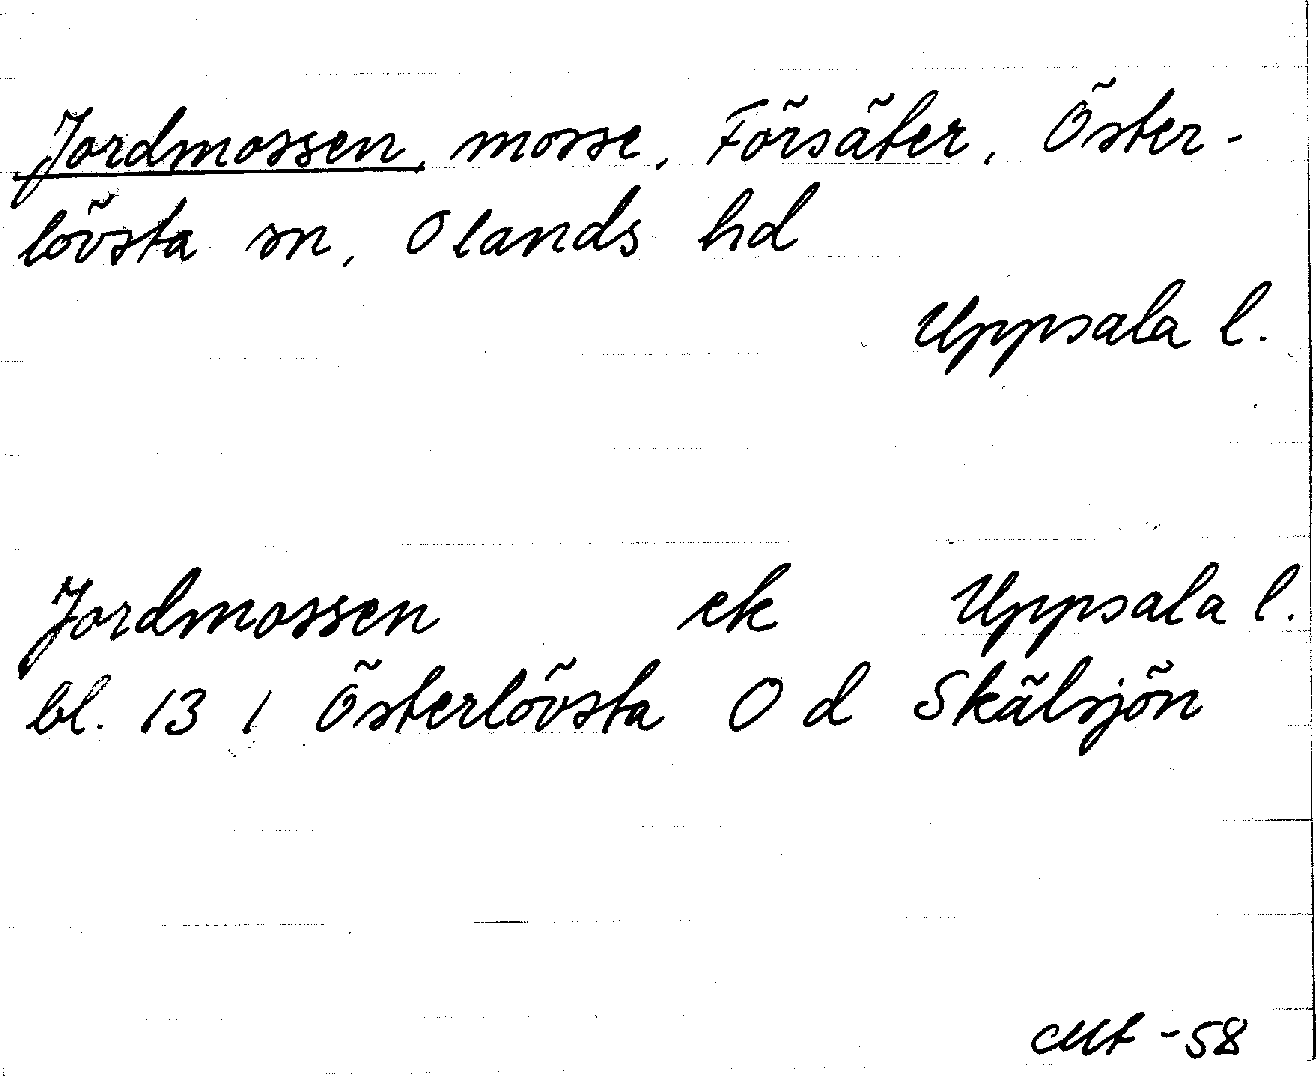 Jordmossen, mosse, Försäter, Öster-
lövsta sn, Olands hd
Uppsala l.
Jordmossen ek Uppsala l.
bl. 13 1 Österlövsta O d Skälsjön
-58